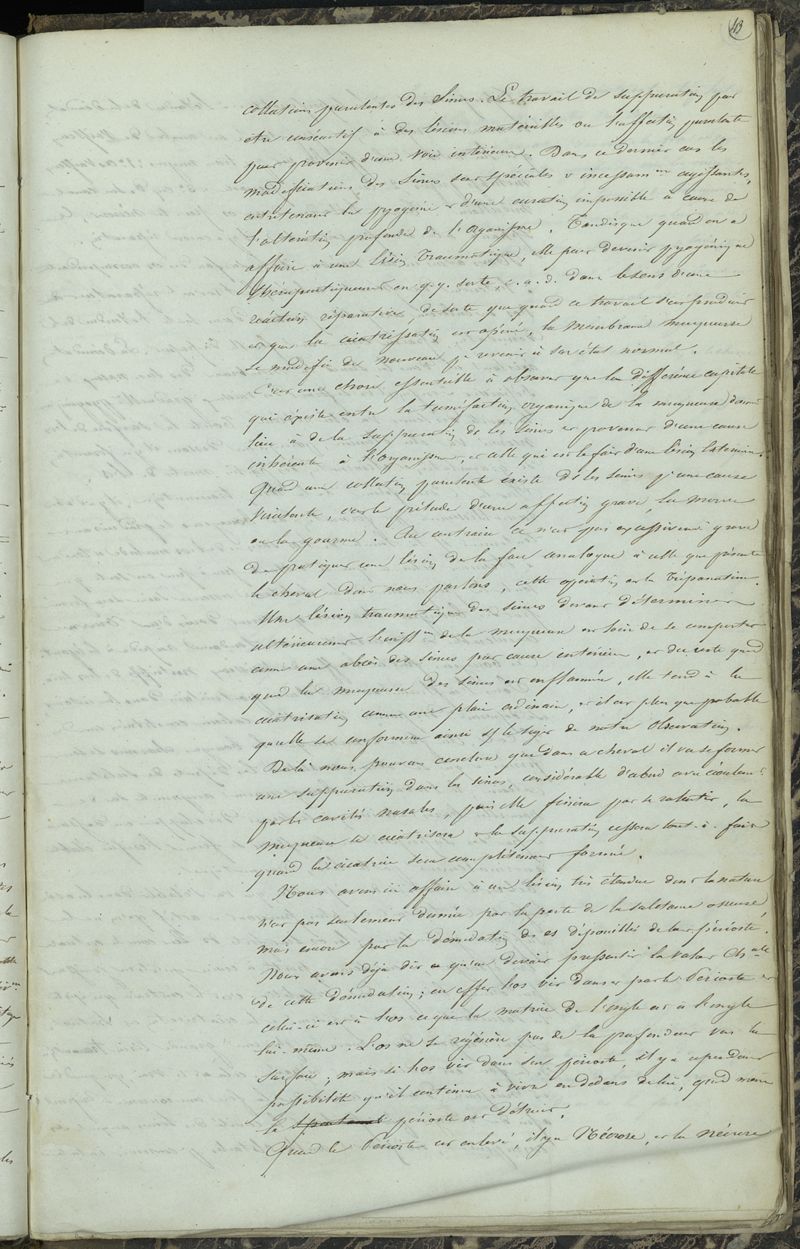 43
collections purulentes des Sinus. Le travail de suppuration peut
être consécutif à des lésions matérielles ou l'affection purulente
peut provenir d'une voie intérieure. Dans ce dernier cas les
modifications des Sinus sont spéciales & incessamment agissantes,
entretenant la pyogénie & d'une curation impossible à cause de
l'altération profonde de l'organisme. Tandisque quand on a
affaire à une lésion traumatique, elle peut devenir pyogénique
thérapeutiquement en q.q. sorte, c.a.d. dans le sens d'une
réaction réparatrice, de sorte que quand ce travail s'est produit
et que la cicatrisation est opérée, la membrane muqueuse
se modifie de nouveau pr revenir à son état normal.
C'est une chose essentielle à observer que la différence capitale
qui existe entre la tuméfaction organique de la muqueuse donnant
lieu à de la suppuration ds les sinus et provenant d'une cause
inhérente à l'organisme, et celle qui est le fait d'une lésion externe.
Quand une collection purulente existe ds les sinus pr une cause
, c'est le prélude d'une affection grave, la morve
ou la gourme. Au contraire ce n'est pas excessivement grave
de pratiquer une lésion de la face analogue à celle que présente
le cheval dont nous parlons, cette opération est la trépanation.
Une lésion traumatique des sinus devant déterminer
ultérieurement de la muqueuse est loin de se comporter
comme une abcès des sinus par cause intérieure, et du reste quand
quand la muqueuse des sinus est enflammée, elle tend à la
cicatrisation comme une plaie ordinaire, & il est plus que probable
qu'elle se conformera ainsi sur le sujet de notre observation.
De là nous pouvons conclure que dans ce cheval il va se former
une suppuration dans les sinus, considérable d'abord avec écoulement
par les cavités nasales, puis elle finira par se ralentir, la
muqueuse se cicatrisera & la suppuration cessera tout-à-fait
quand la cicatrice sera complètement formée.
Nous avons ici affaire à une lésion très étendue dont la nature
n'est pas seulement donnée par la perte de la substance osseuse,
mais encore par la dénudation des os dépouillés de leur périoste.
Nous avons déjà dit ce qui devait pressentir la valeur
de cette dénudation; en effet l'os vit dans et par le Périoste et
celui-ci est à l'os ce que la matrice de l'ongle est à l'ongle
lui-même. L'os ne se régénère pas de la profondeur vers la
surface; mais si l'os vit dans son périoste, il y a cependant
possibilité qu'il continue à vivre en dedans de lui, quand même
le périoste est détruit.
Quand le Périoste est enlevé, il y a Nécrose, et la nécrose